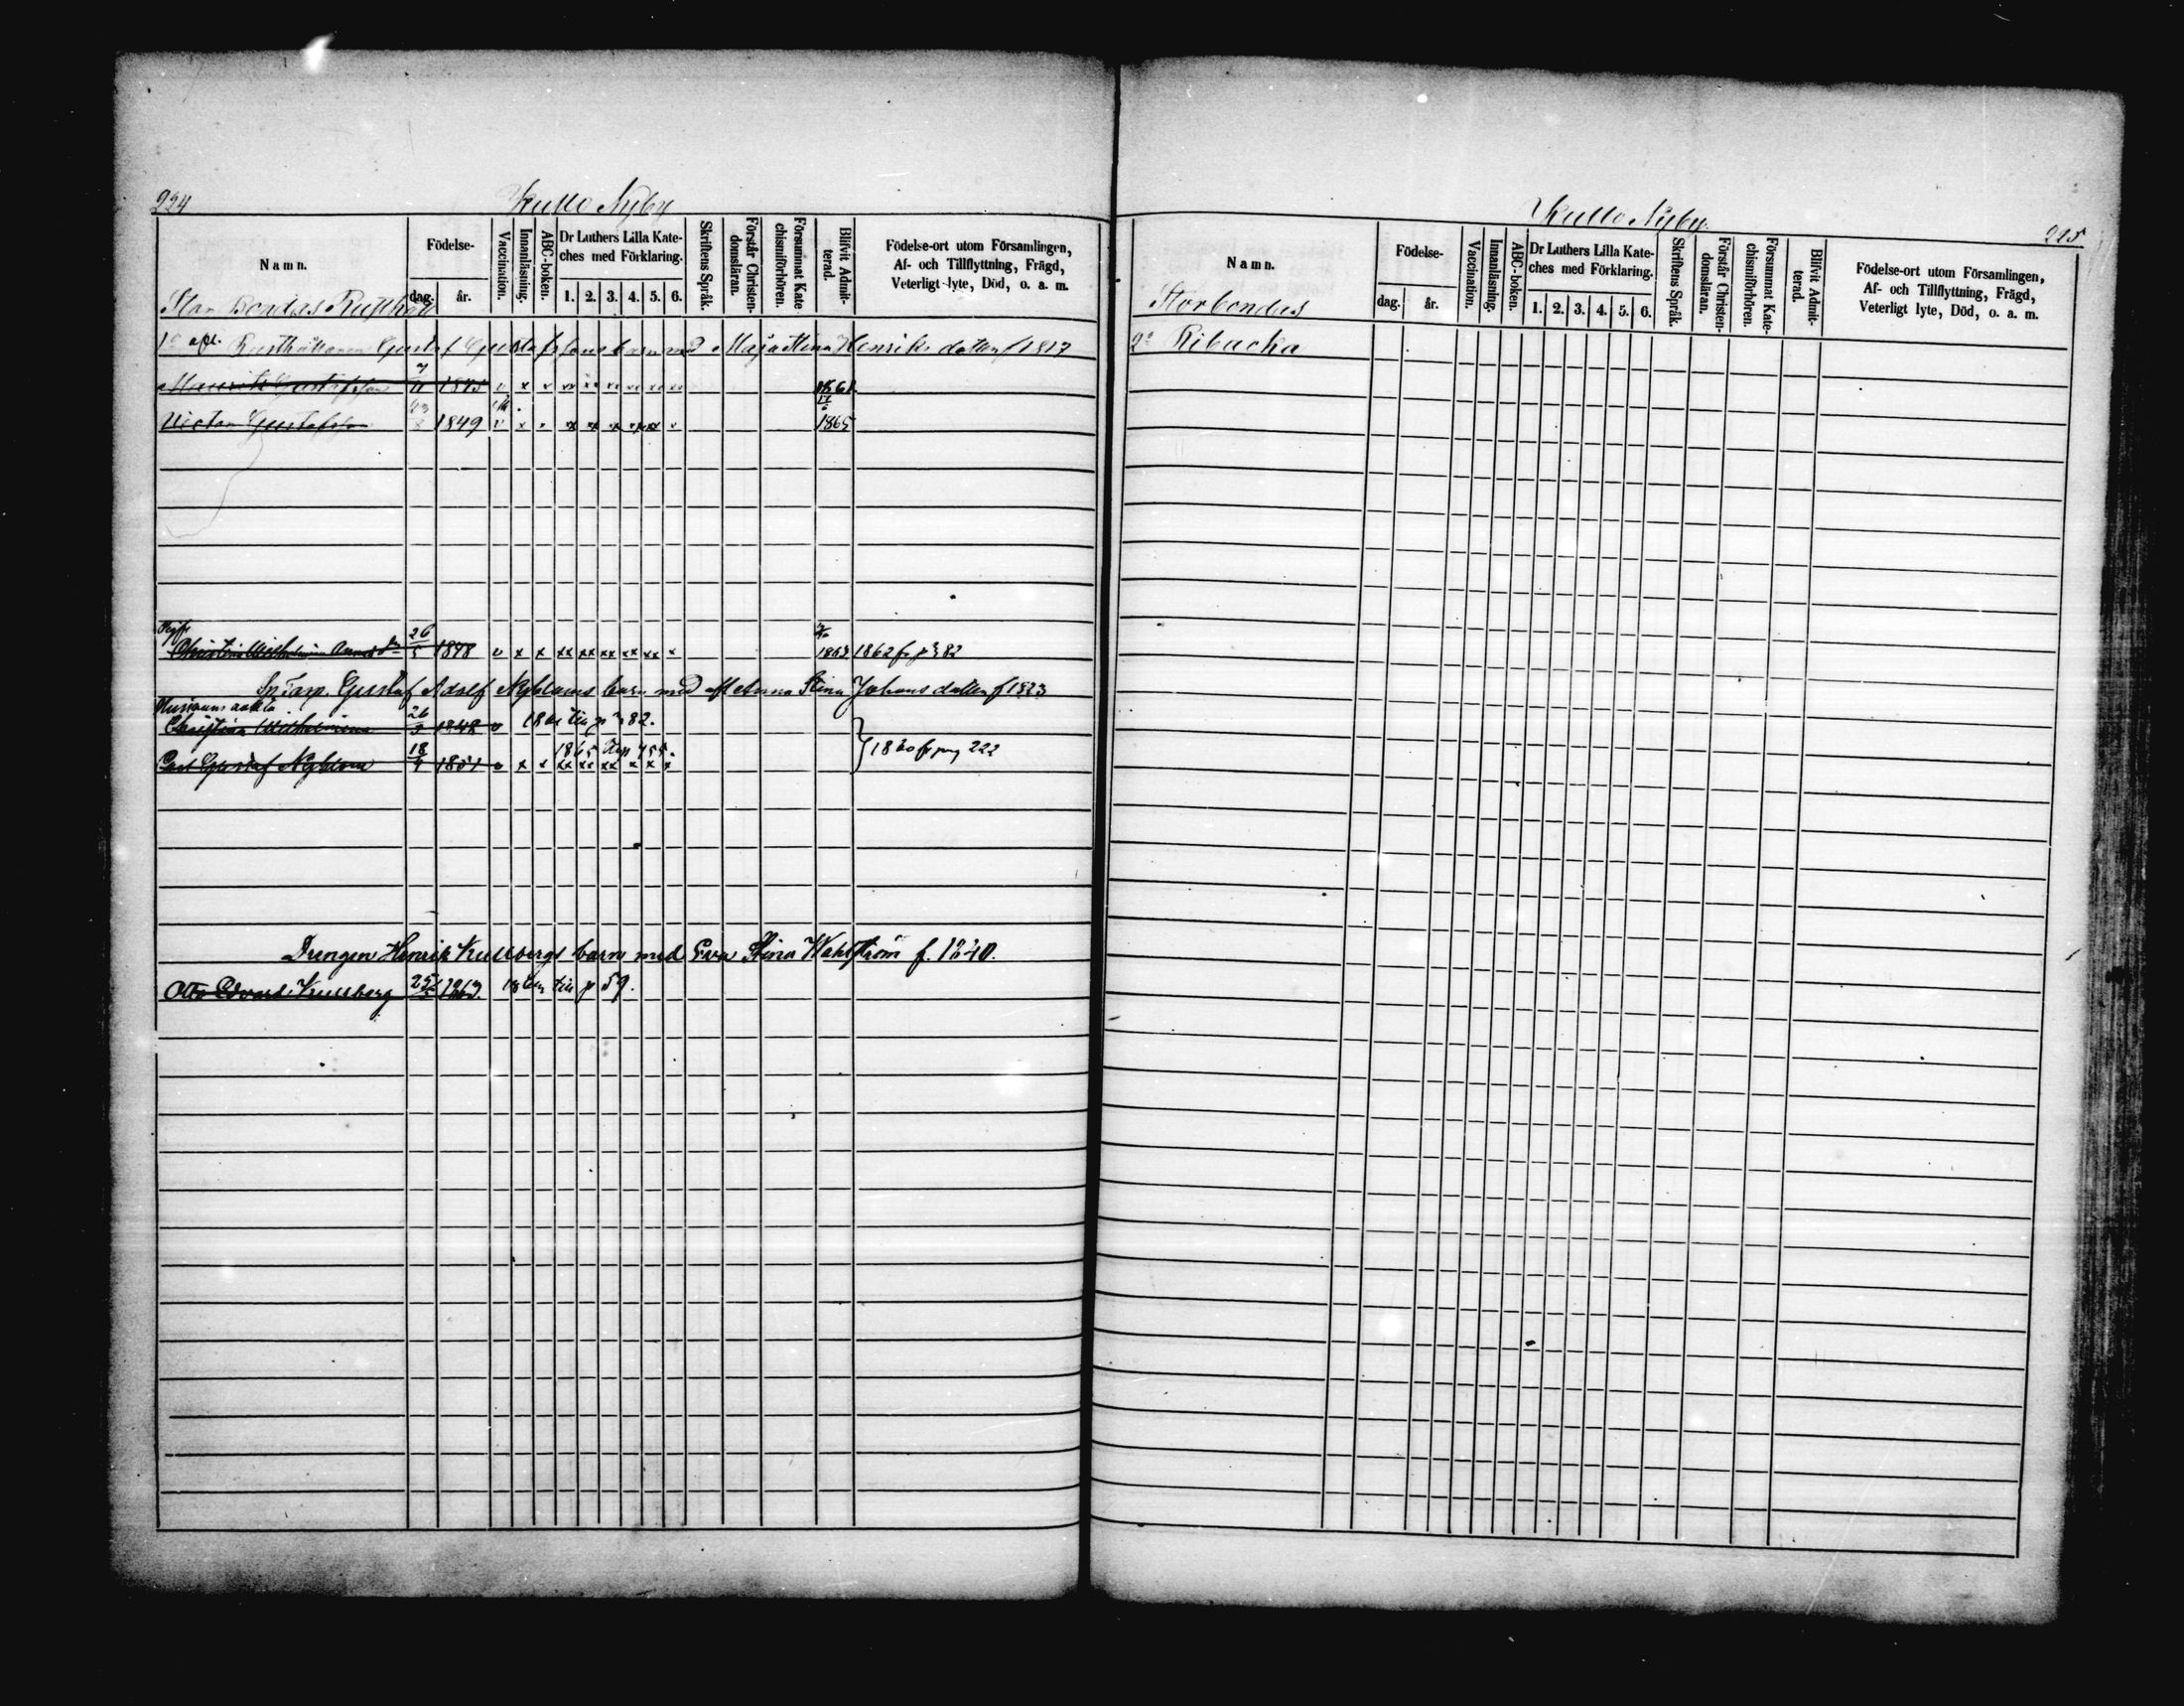 224
Kullo Nyby
Namn.
Födelse-
dag.
år.
Vaccination.
Innanläsning.
ABC-boken.
Dr Luthers Lilla Kate-
ches med Förklaring.
1. 2. 3. 4. 5. 6.
Skriftens Språk.
Förstår Christen-
domsläran.
Försummat Kate-
chismiförhören.
Blifvit Admit-
terad.
Födelse-ort utom Församlingen,
Af- och Tillflyttning, Frägd,
Veterligt lyte, Död, o. a. m.
Stor Bondas Rusthåll
1o afl. Rusthållaren Gustaf Gustafssons barn med Maja Stina Henriksdotter f 1817
Gustafsson 1845 v x x xx xx xx xx xx xx 1861
Victor Gustafsson 23 1849 v x x xx xx xx xx xx x 1865
Christina Wilhelmina 26/5 1848 v x x xx xx xx xx xx x 1862 fr p 382
Gustaf Adolf Nybloms barn med afl Anna Stina Johansdotter f 1823
Christina Wilhelmina 26 1848 v till p 382.
Carl Gustaf Nyblom 18 1851 x x xx xx xx x x x 1865
1860 fr pag 222
Drengen Henrik Kullbergs barn med Eva Stina Wahlström f. 1840.
Otto Edvard Kullberg 25 1863. till p 59.
Kullo Nyby.
225
Namn.
Födelse-
dag.
år.
Vaccination.
Innanläsning.
ABC-boken.
Dr Luthers Lilla Kate-
ches med Förklaring.
1. 2. 3. 4. 5. 6.
Skriftens Språk.
Förstår Christen-
domsläran.
Försummat Kate-
chismiförhören.
Blifvit Admit-
terad.
Födelse-ort utom Församlingen,
Af- och Tillflyttning, Frägd,
Veterligt lyte, Död, o. a. m.
Storbondas
2o Ribacka